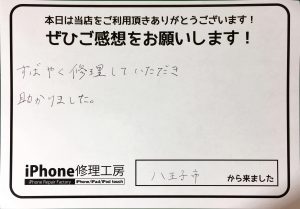 本日は当店をご利用頂きありがとうございます！
ぜひご感想をお願いします！
すばやく修理していただき
助かりました。
iPhone修理工房
iPhone Repair Factory iPhone/iPad/iPod touch
八王子市 から来ました